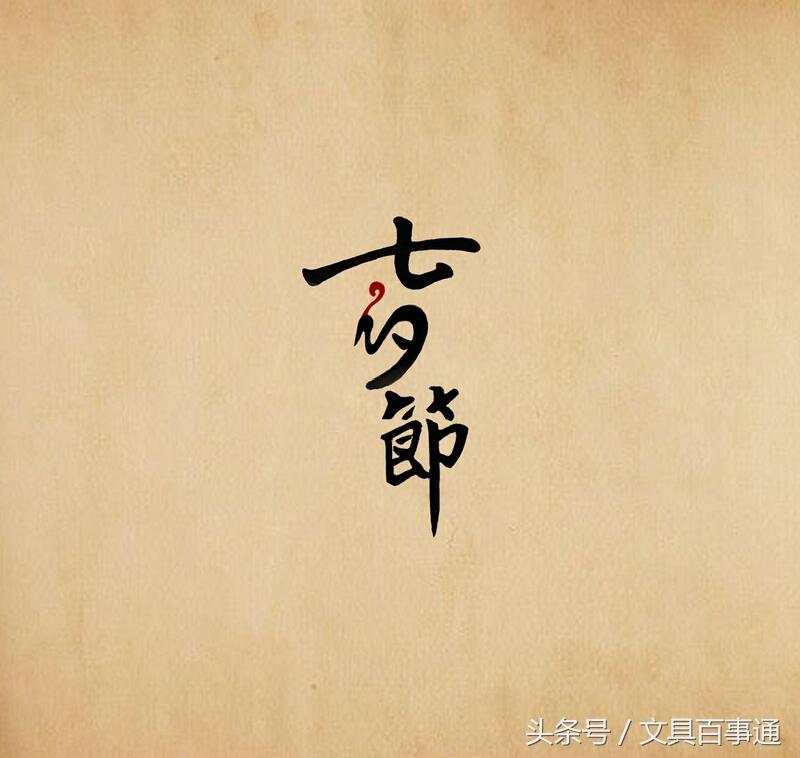 七夕節
头条号 / 文具百事通